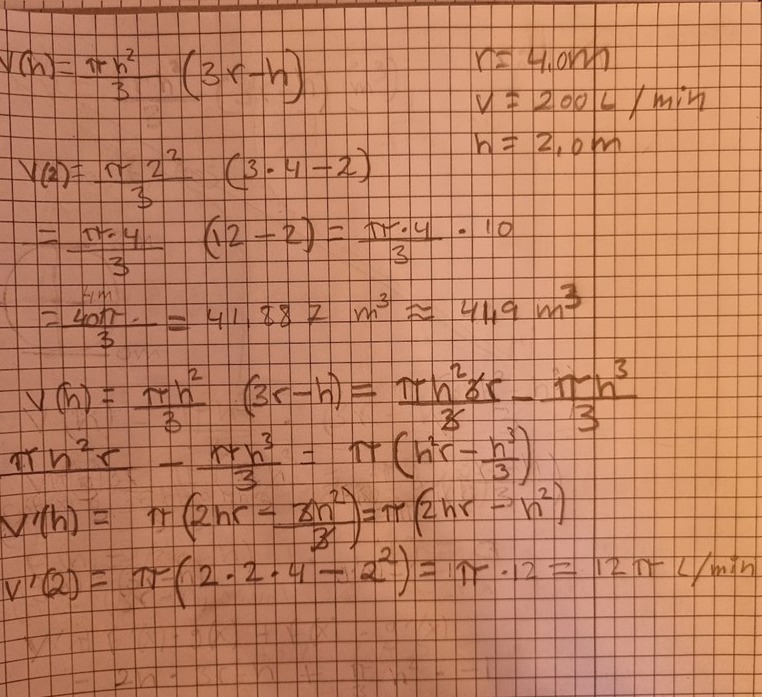 V(h) = πh²/3 (3r-h)
r = 4,0m
v = 200 L/min
h = 2,0m
V(2) = π2²/3 (3·4-2)
= π·4/3 (12-2) = π·4/3 · 10
= 40π/3 = 41,887 m³ ≈ 41,9 m³
V(h) = πh²/3 (3r-h) = πh²3r/3 - πh³/3
πh²r - πh³/3 = π(h²r - h³/3)
V'(h) = π(2hr - 3h²/3) = π(2hr - h²)
V'(2) = π(2·2·4 - 2²) = π·12 = 12π L/min